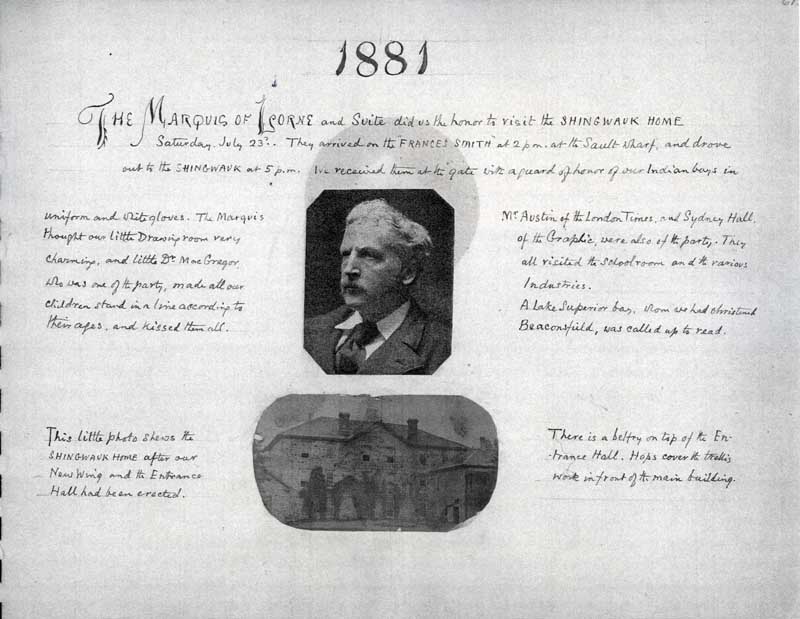 1881
THE MARQUIS OF LORNE and Suite did us the honor to visit the SHINGWAUK HOME
Saturday, July 23rd. They arrived on the "FRANCES SMITH" at 2 p.m. at the Sault wharf, and drove
out to the SHINGWAUK at 5 p.m. We received them at the gate with a guard of honor of our Indian boys in
uniform and white gloves. The Marquis
thought our little Drawing room very
charming, and little Dr. MacGregor
who was one of the party, made all our
children stand in a line according to
their ages, and kissed them all.
Mr. Austin of the London Times, and Sydney Hall,
of the Graphic, were also of the party. They
all visited the Schoolroom and the various
Industries.
A Lake Superior boy, whom we had christened
Beaconsfield, was called up to read.
This little photo shews the
SHINGWAUK HOME after our
New Wing and the Entrance
Hall had been erected.
There is a belfry on top of the En-
-trance Hall. Hops cover the trellis
work in front of the main building.